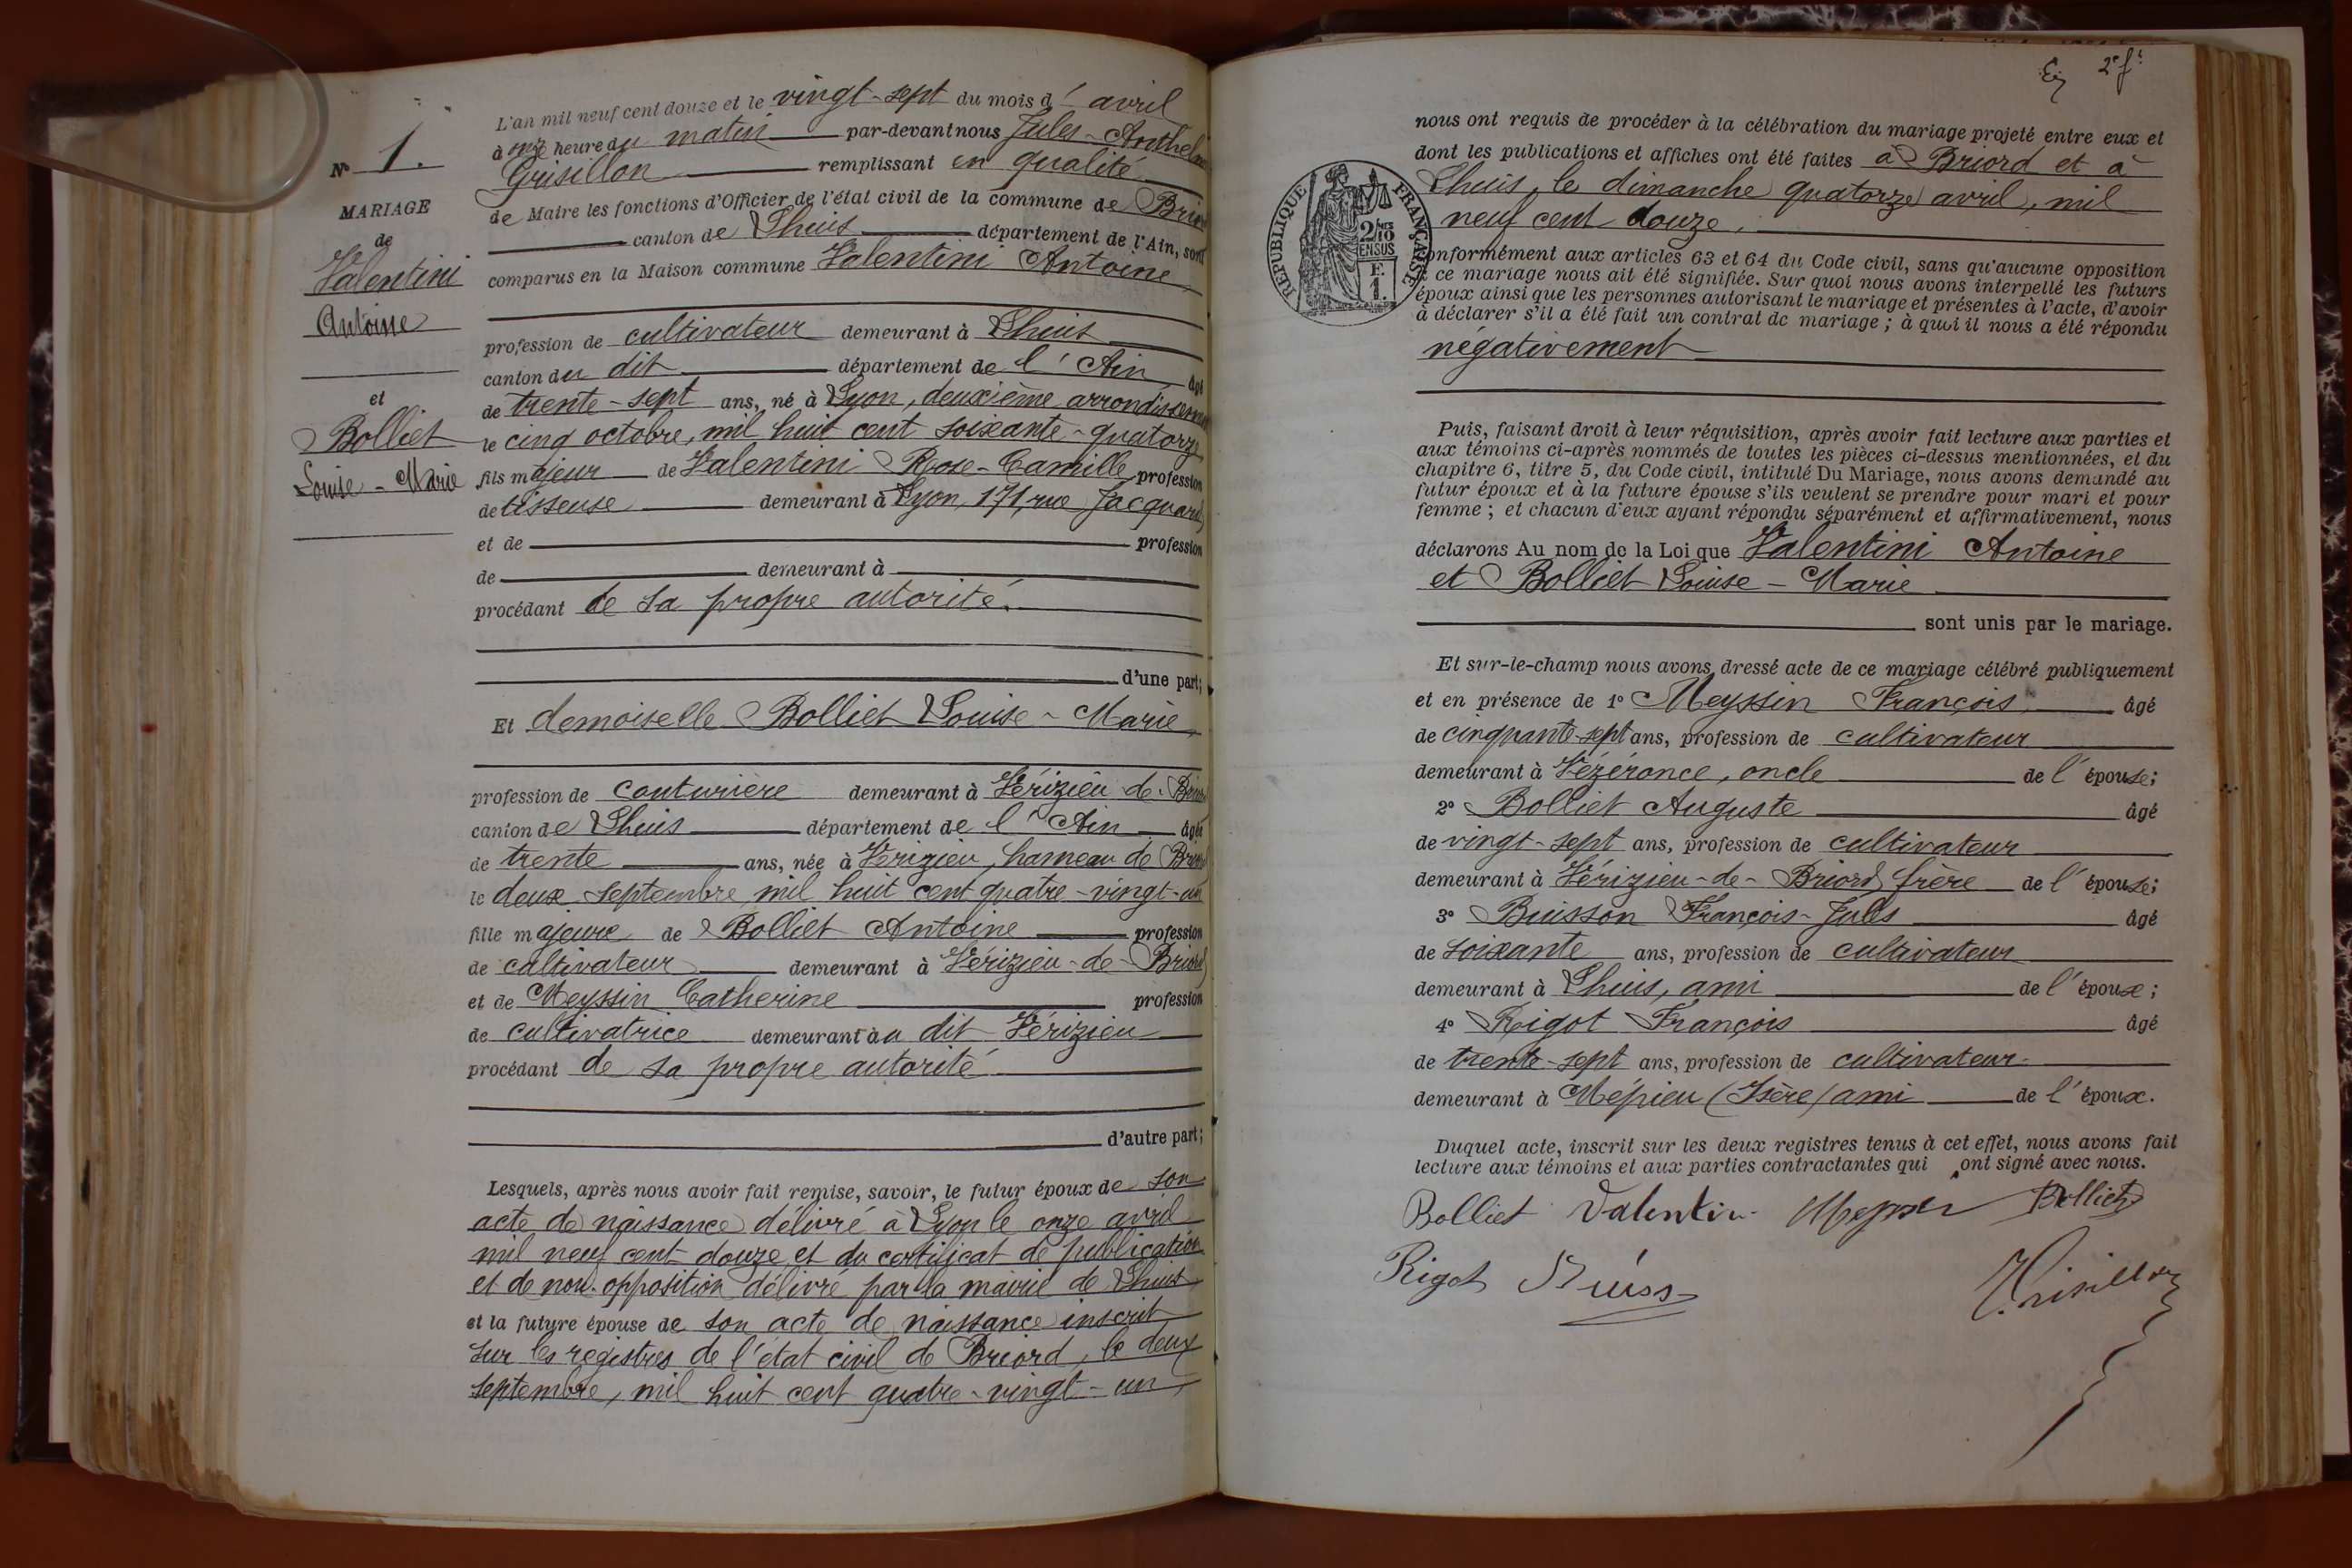 L'an mil neuf cent douze et le vingt-sept du mois d'avril
à onze heure du matin par-devant nous Jules-Anthelme
Grisillon remplissant en qualité
de Maire les fonctions d'Officier de l'état civil de la commune de Briord
canton de Lhuis département de l'Ain, sont
comparus en la Maison commune Valentini Antoine
profession de cultivateur demeurant à Lhuis
canton du dit département de l'Ain âgé
de trente-sept ans, né à Lyon, deuxième arrondissement
le cinq octobre, mil huit cent soixante-quatorze
fils majeur de Valentini Rose-Camille profession
de tisseuse demeurant à Lyon, 171, rue Jacquard
et de profession
de demeurant à
procédant de sa propre autorité.
d'une part;
Et demoiselle Bolliet Louise-Marie
profession de couturière demeurant à Vérizieu-de-Briord
canton de Lhuis département de l'Ain âgée
de trente ans, née à Vérizieu, hameau de Briord
le deux septembre mil huit cent quatre-vingt-un
fille majeure de Bolliet Antoine profession
de cultivateur demeurant à Vérizieu-de-Briord
et de Meyssin Catherine profession
de cultivatrice demeurant au dit Vérizieu
procédant de sa propre autorité
d'autre part;
Lesquels, après nous avoir fait remise, savoir, le futur époux de son
acte de naissance délivré à Lyon le onze avril
mil neuf cent douze et du certificat de publication
et de non-opposition délivré par la mairie de Lhuis
et la future épouse de son acte de naissance inscrit
sur les registres de l'état civil de Briord, le deux
septembre, mil huit cent quatre-vingt-un,
N° 1.
MARIAGE
de
Valentini
Antoine
et
Bolliet
Louise-Marie
2e f t
nous ont requis de procéder à la célébration du mariage projeté entre eux et
dont les publications et affiches ont été faites à Briord et à
Lhuis, le dimanche quatorze avril, mil
neuf cent douze.
RÉPUBLIQUE FRANÇAISE
2/10 EN SUS
F.
1.
conformément aux articles 63 et 64 du Code civil, sans qu'aucune opposition
à ce mariage nous ait été signifiée. Sur quoi nous avons interpellé les futurs
époux ainsi que les personnes autorisant le mariage et présentes à l'acte, d'avoir
à déclarer s'il a été fait un contrat de mariage ; à quoi il nous a été répondu
négativement
Puis, faisant droit à leur réquisition, après avoir fait lecture aux parties et
aux témoins ci-après nommés de toutes les pièces ci-dessus mentionnées, et du
chapitre 6, titre 5, du Code civil, intitulé Du Mariage, nous avons demandé au
futur époux et à la future épouse s'ils veulent se prendre pour mari et pour
femme ; et chacun d'eux ayant répondu séparément et affirmativement, nous
déclarons Au nom de la Loi que Valentini Antoine
et Bolliet Louise-Marie
sont unis par le mariage.
Et sur-le-champ nous avons dressé acte de ce mariage célébré publiquement
et en présence de 1° Meyssin François âgé
de cinquante-sept ans, profession de cultivateur
demeurant à Vézeronce, oncle de l'épouse;
2° Bolliet Auguste âgé
de vingt-sept ans, profession de cultivateur
demeurant à Vérizieu-de-Briord, frère de l'épouse;
3° Buisson François-Jules âgé
de soixante ans, profession de cultivateur
demeurant à Lhuis, ami de l'époux;
4° Rigot François âgé
de trente-sept ans, profession de cultivateur
demeurant à Mépieu (Isère) ami de l'époux.
Duquel acte, inscrit sur les deux registres tenus à cet effet, nous avons fait
lecture aux témoins et aux parties contractantes qui ont signé avec nous.
Bolliet Valentini Meyssin Bolliet
Rigot Buisson Grisillon